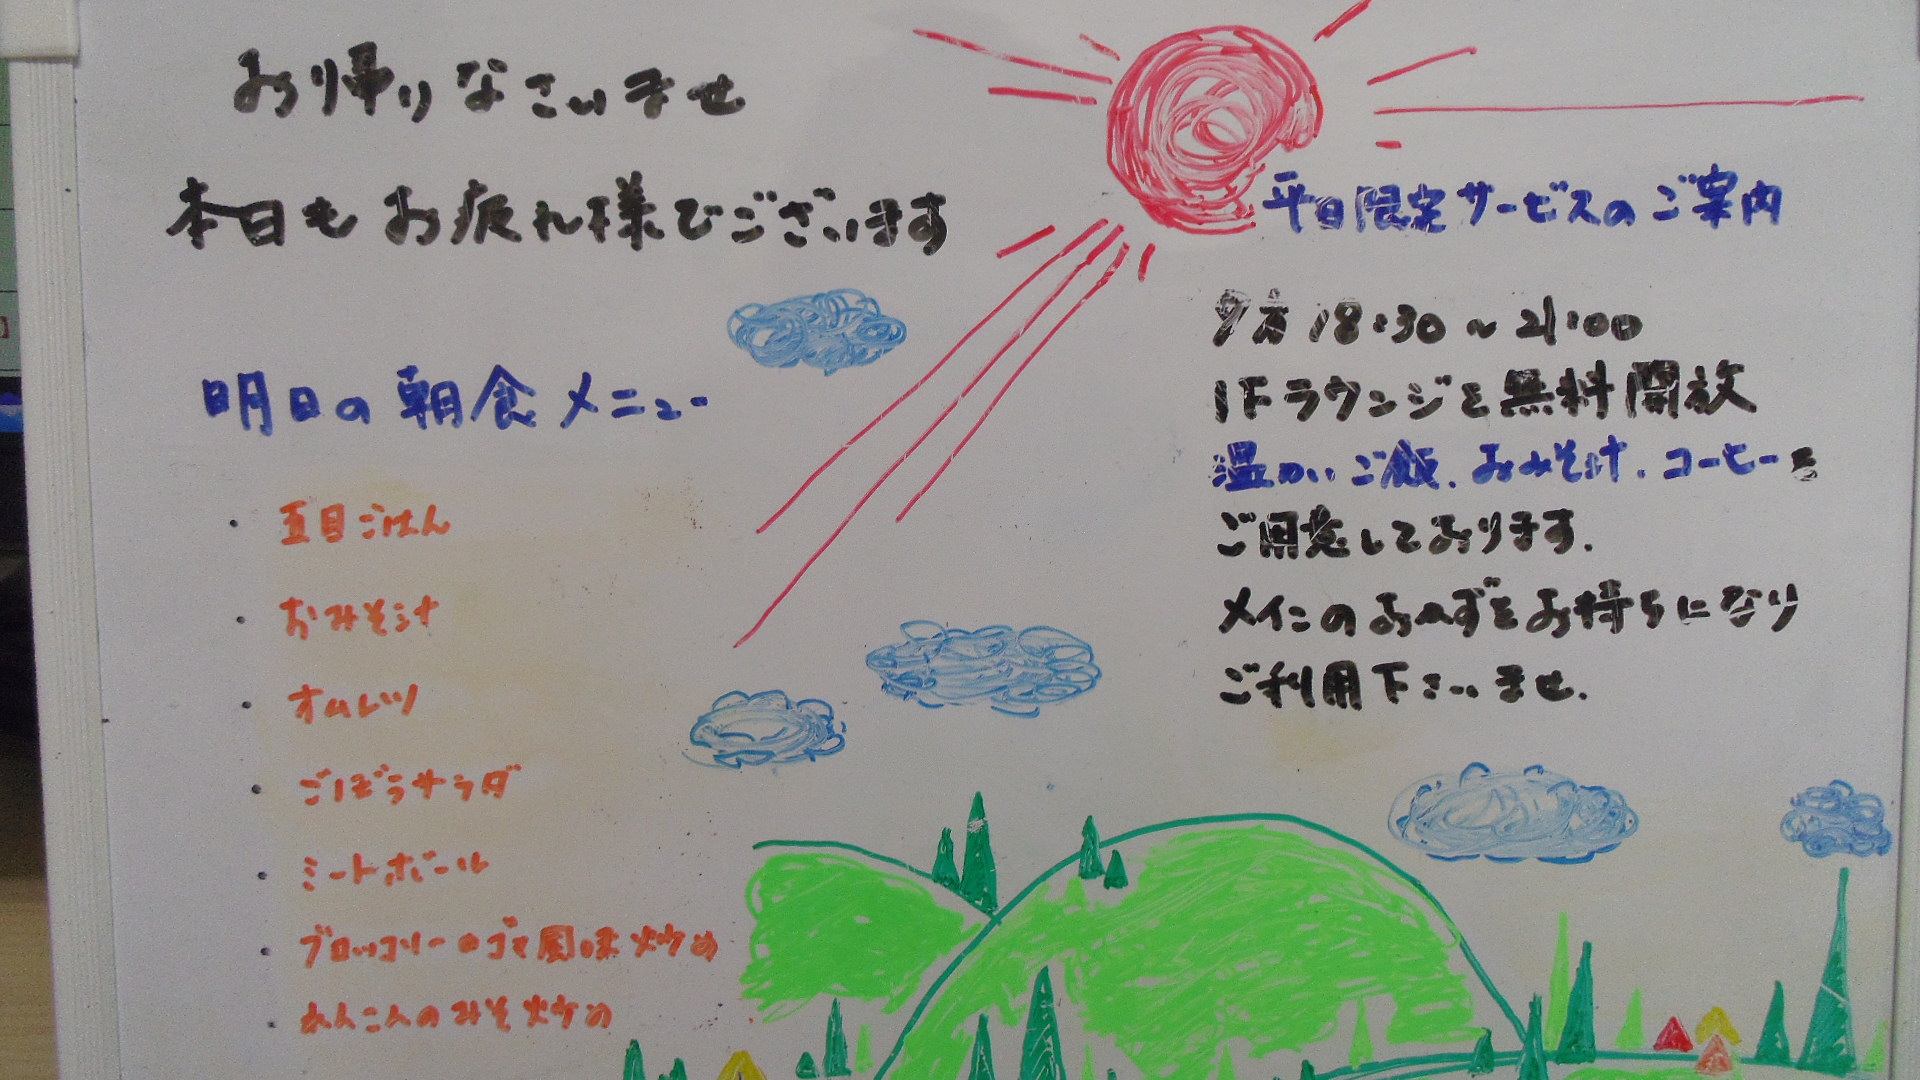 お帰りなさいませ
本日もお疲れ様でございます
明日の朝食メニュー
・五目ごはん
・おみそ汁
・オムレツ
・ごぼうサラダ
・ミートボール
・ブロッコリーのゴマ風味炒め
・れんこんのみそ炒め
平日限定サービスのご案内
夕方18:30～21:00
1Fラウンジを無料開放
温かいご飯、おみそ汁、コーヒーを
ご用意しております。
メインのおかずをお持ちになり
ご利用下さいませ。